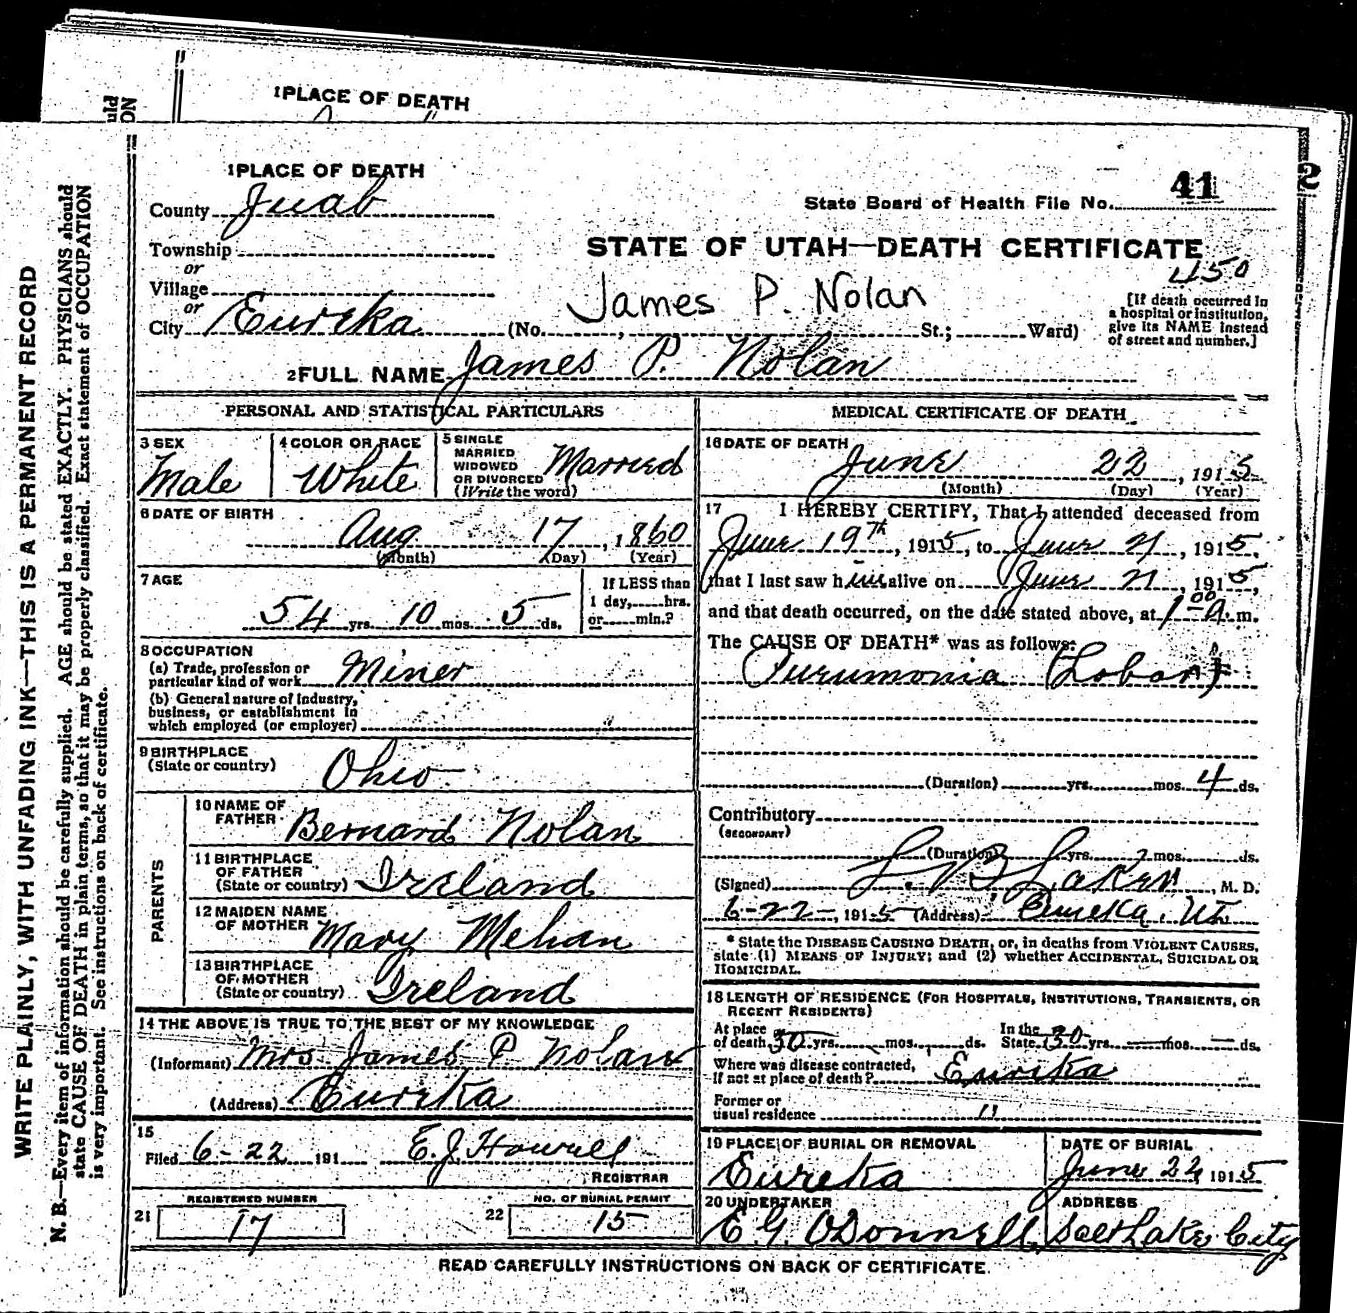 1 PLACE OF DEATH
1 PLACE OF DEATH
41
2
County Juab
State Board of Health File No.
Township
STATE OF UTAH—DEATH CERTIFICATE
or
450
Village
or
James P. Nolan
[If death occurred in a hospital or institution, give its NAME instead of street and number.]
City Eureka (No. , St.; Ward)
2 FULL NAME James P. Nolan
PERSONAL AND STATISTICAL PARTICULARS
3 SEX Male
4 COLOR OR RACE White
5 SINGLE MARRIED WIDOWED OR DIVORCED (Write the word) Married
6 DATE OF BIRTH
Aug 17, 1860
(Month) (Day) (Year)
7 AGE
54 yrs. 10 mos. 5 ds.
If LESS than 1 day, hrs. or min.?
8 OCCUPATION
(a) Trade, profession or particular kind of work Miner
(b) General nature of industry, business, or establishment in which employed (or employer)
9 BIRTHPLACE (State or country) Ohio
PARENTS
10 NAME OF FATHER Bernard Nolan
11 BIRTHPLACE OF FATHER (State or country) Ireland
12 MAIDEN NAME OF MOTHER Mary Mehan
13 BIRTHPLACE OF MOTHER (State or country) Ireland
14 THE ABOVE IS TRUE TO THE BEST OF MY KNOWLEDGE
(Informant) Mrs James P Nolan
(Address) Eureka
15
Filed 6-22 191 E.J. Howell
REGISTRAR
21 REGISTERED NUMBER 17
22 NO. OF BURIAL PERMIT 15
MEDICAL CERTIFICATE OF DEATH
16 DATE OF DEATH
June 22, 1915
(Month) (Day) (Year)
17 I HEREBY CERTIFY, That I attended deceased from
June 19th, 1915, to June 21, 1915,
that I last saw him alive on June 21, 1915,
and that death occurred, on the date stated above, at 1 00 A. m.
The CAUSE OF DEATH* was as follows:
Pneumonia (Lobar)
(Duration) yrs. mos. 4 ds.
Contributory
(SECONDARY)
(Duration) yrs. mos. ds.
(Signed) M. D.
6-22-, 1915 (Address) Eureka, Ut.
* State the DISEASE CAUSING DEATH, or, in deaths from VIOLENT CAUSES, state (1) MEANS OF INJURY; and (2) whether ACCIDENTAL, SUICIDAL OR HOMICIDAL.
18 LENGTH OF RESIDENCE (FOR HOSPITALS, INSTITUTIONS, TRANSIENTS, OR RECENT RESIDENTS)
At place of death 30 yrs. mos. ds. In the State 30 yrs. — mos. — ds.
Where was disease contracted, if not at place of death? Eureka
Former or usual residence "
19 PLACE OF BURIAL OR REMOVAL Eureka
DATE OF BURIAL June 24 1915
20 UNDERTAKER E G. O'Donnell
ADDRESS Salt Lake City
READ CAREFULLY INSTRUCTIONS ON BACK OF CERTIFICATE.
WRITE PLAINLY, WITH UNFADING INK—THIS IS A PERMANENT RECORD
N. B.—Every item of information should be carefully supplied. AGE should be stated EXACTLY. PHYSICIANS should
state CAUSE OF DEATH in plain terms, so that it may be properly classified. Exact statement of OCCUPATION
is very important. See instructions on back of certificate.